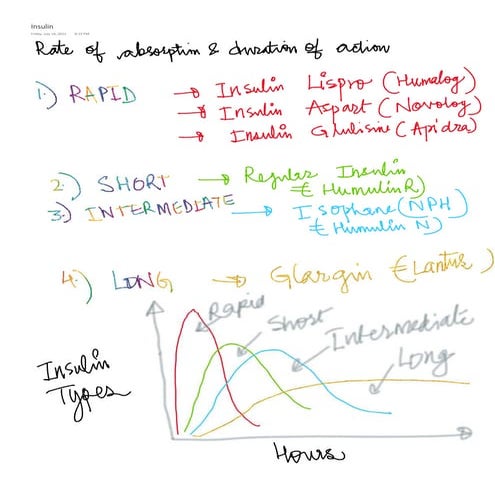 Insulin
Rate of absorption & duration of action
1.) RAPID → Insulin Lispro (Humalog)
→ Insulin Aspart (Novolog)
→ Insulin Glulisine (Apidra)
2.) SHORT → Regular Insulin
(Humulin R)
3.) INTERMEDIATE → Isophane (NPH)
(Humulin N)
4.) LONG → Glargin (Lantus)
Rapid
Short
Intermediate
Long
Insulin
Types
Hours